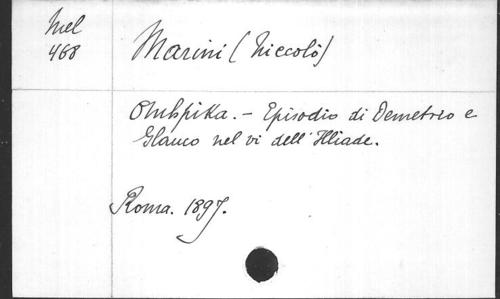 Mel
468
Marini (Niccolò)
Episodio di Demetrio e
Glauco nel vi dell' Illiade.
Roma. 1897.